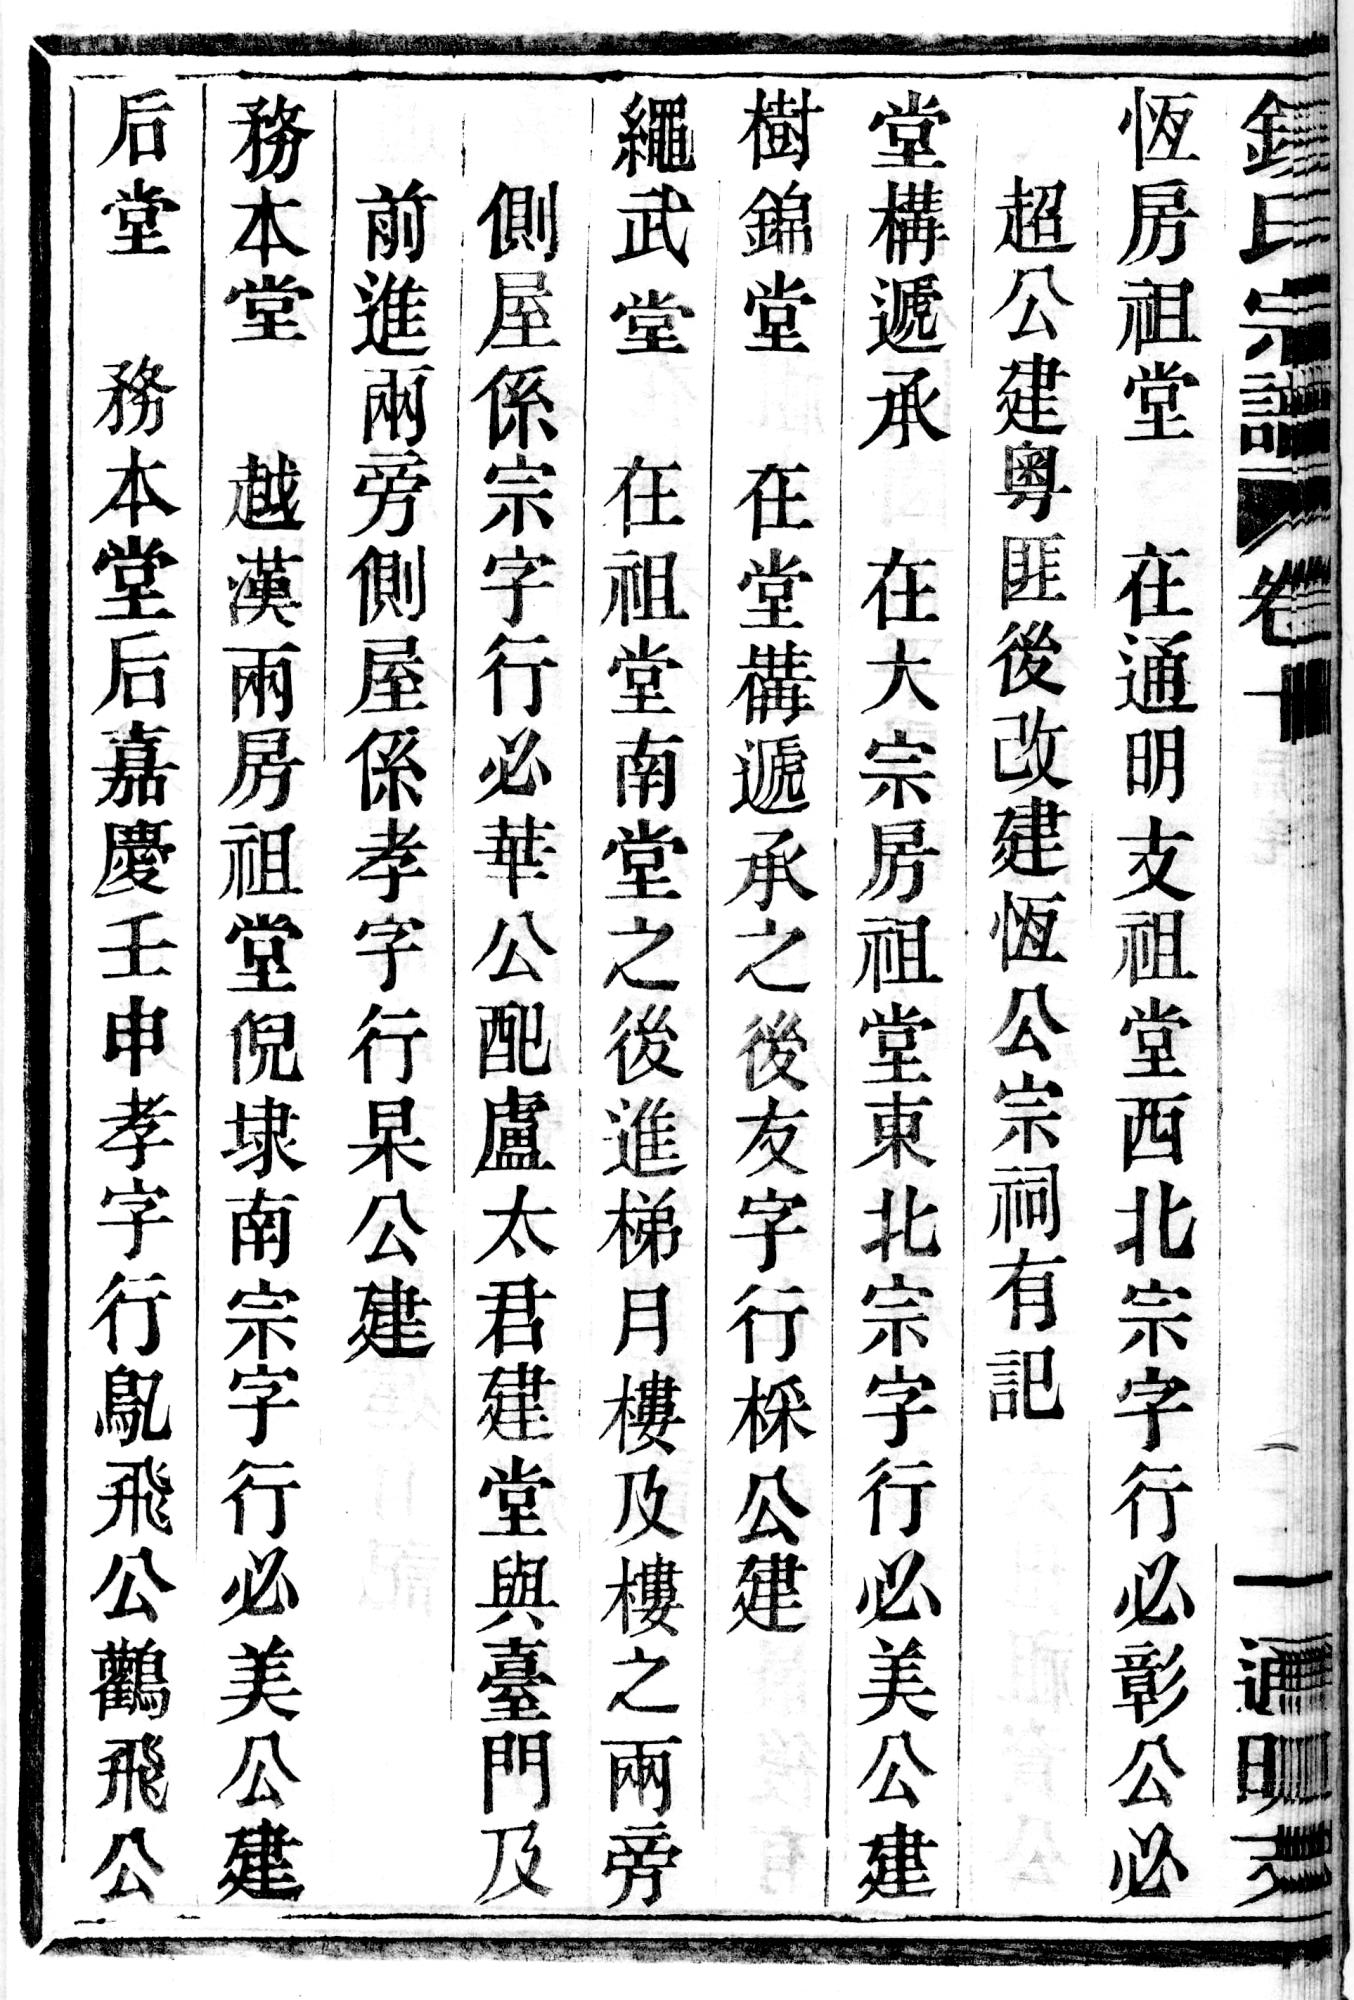 氏宗譜 卷十 一 通明支
恆房祖堂 在通明支祖堂西北宗字行必彰公必
超公建粵匪後改建恆公宗祠有記
堂構遞承 在大宗房祖堂東北宗字行必美公建
樹錦堂 在堂構遞承之後友字行棌公建
繩武堂 在祖堂南堂之後進梯月樓及樓之兩旁
側屋係宗字行必華公配盧太君建堂與臺門及
前進兩旁側屋係孝字行杲公建
務本堂 越漢兩房祖堂倪埭南宗字行必美公建
后堂 務本堂后嘉慶壬申孝字行鳧飛公鸛飛公